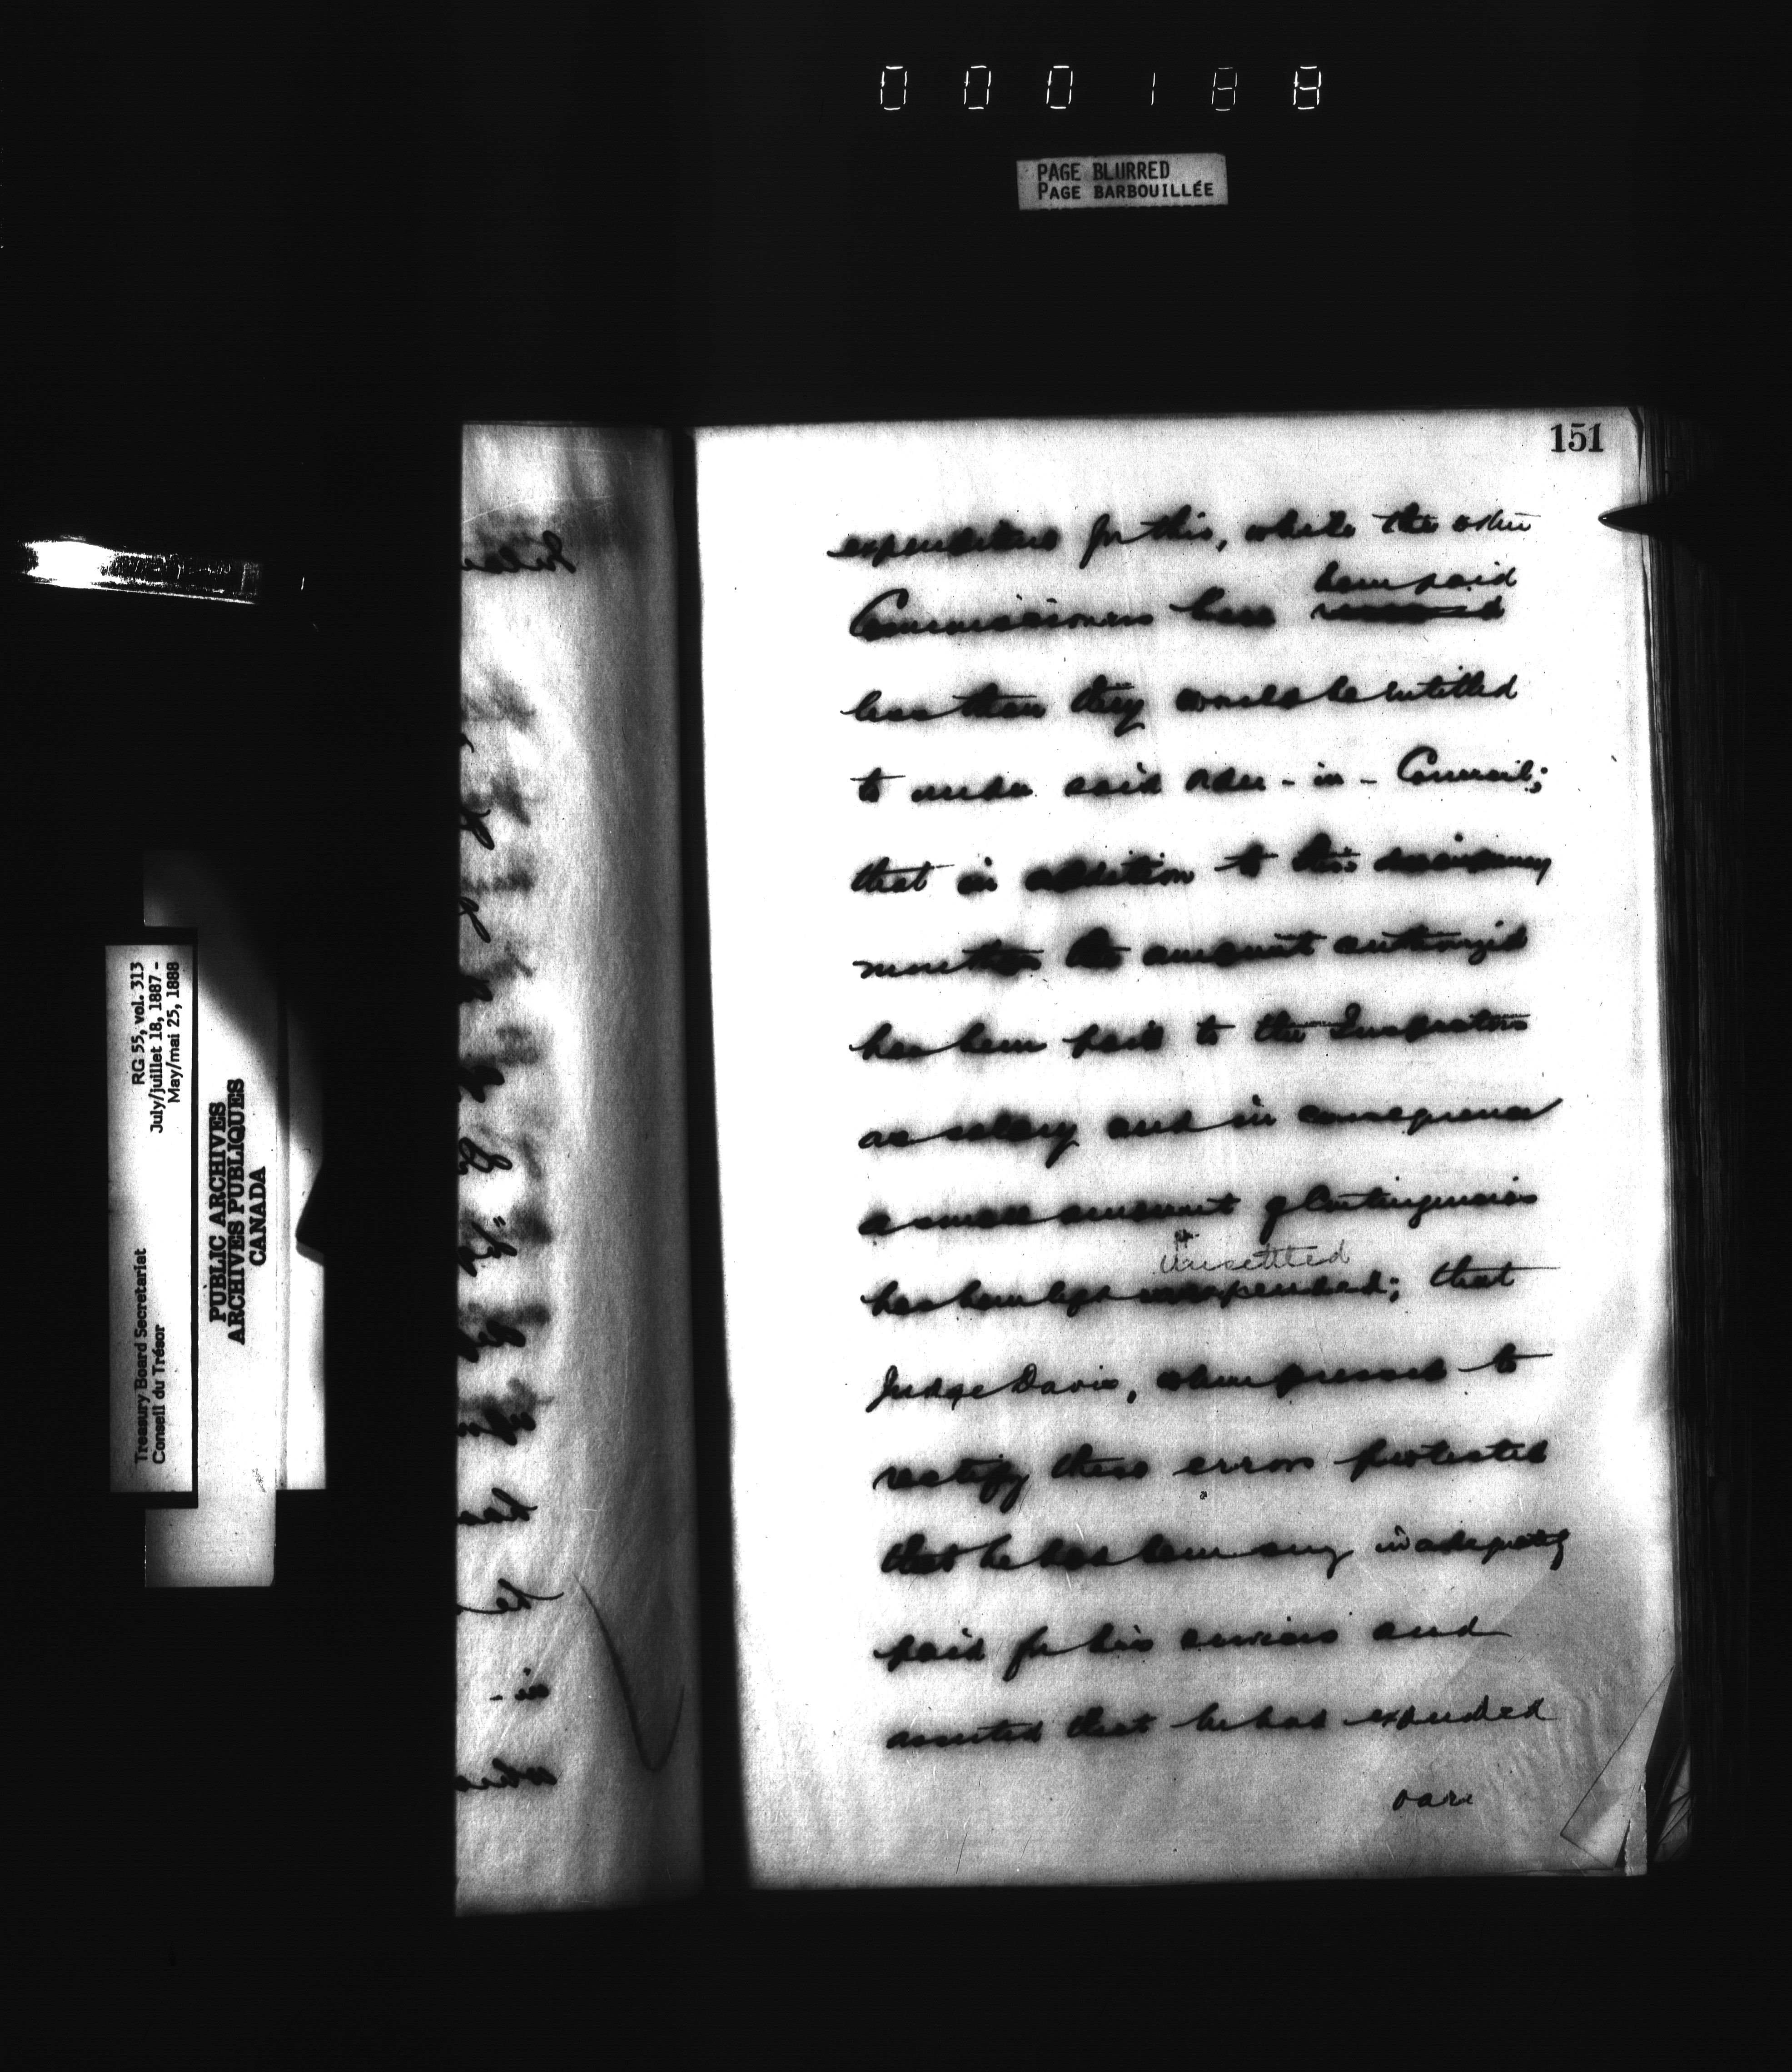 000188
PAGE BLURRED
PAGE BARBOUILLÉE
151
expenditure for this, while the other
been paid
Commissioners have
less than they would be entitled
to under said Order-in-Council;
that in addition to this
more than the amount authorized
has been paid to the
as salary and in consequence
a small amount of Contingencies
unsettled
has been kept unexpended; that
Judge Davis, when pressed to
rectify these errors protested
that he has been very inadequately
paid for his services and
asserted that he had expended
over
RG 55, vol. 313
July/juillet 18, 1887 -
May/mai 25, 1888
Treasury Board Secretariat
Conseil du Trésor
PUBLIC ARCHIVES
ARCHIVES PUBLIQUES
CANADA